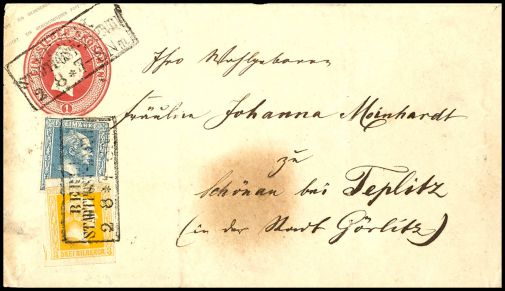 Ihro Wohlgeboren
Fräulein Johanna Meinhardt
zu
Schönau bei Teplitz
(in der Stadt Görlitz)
1
FREIMARKE
2 8 *